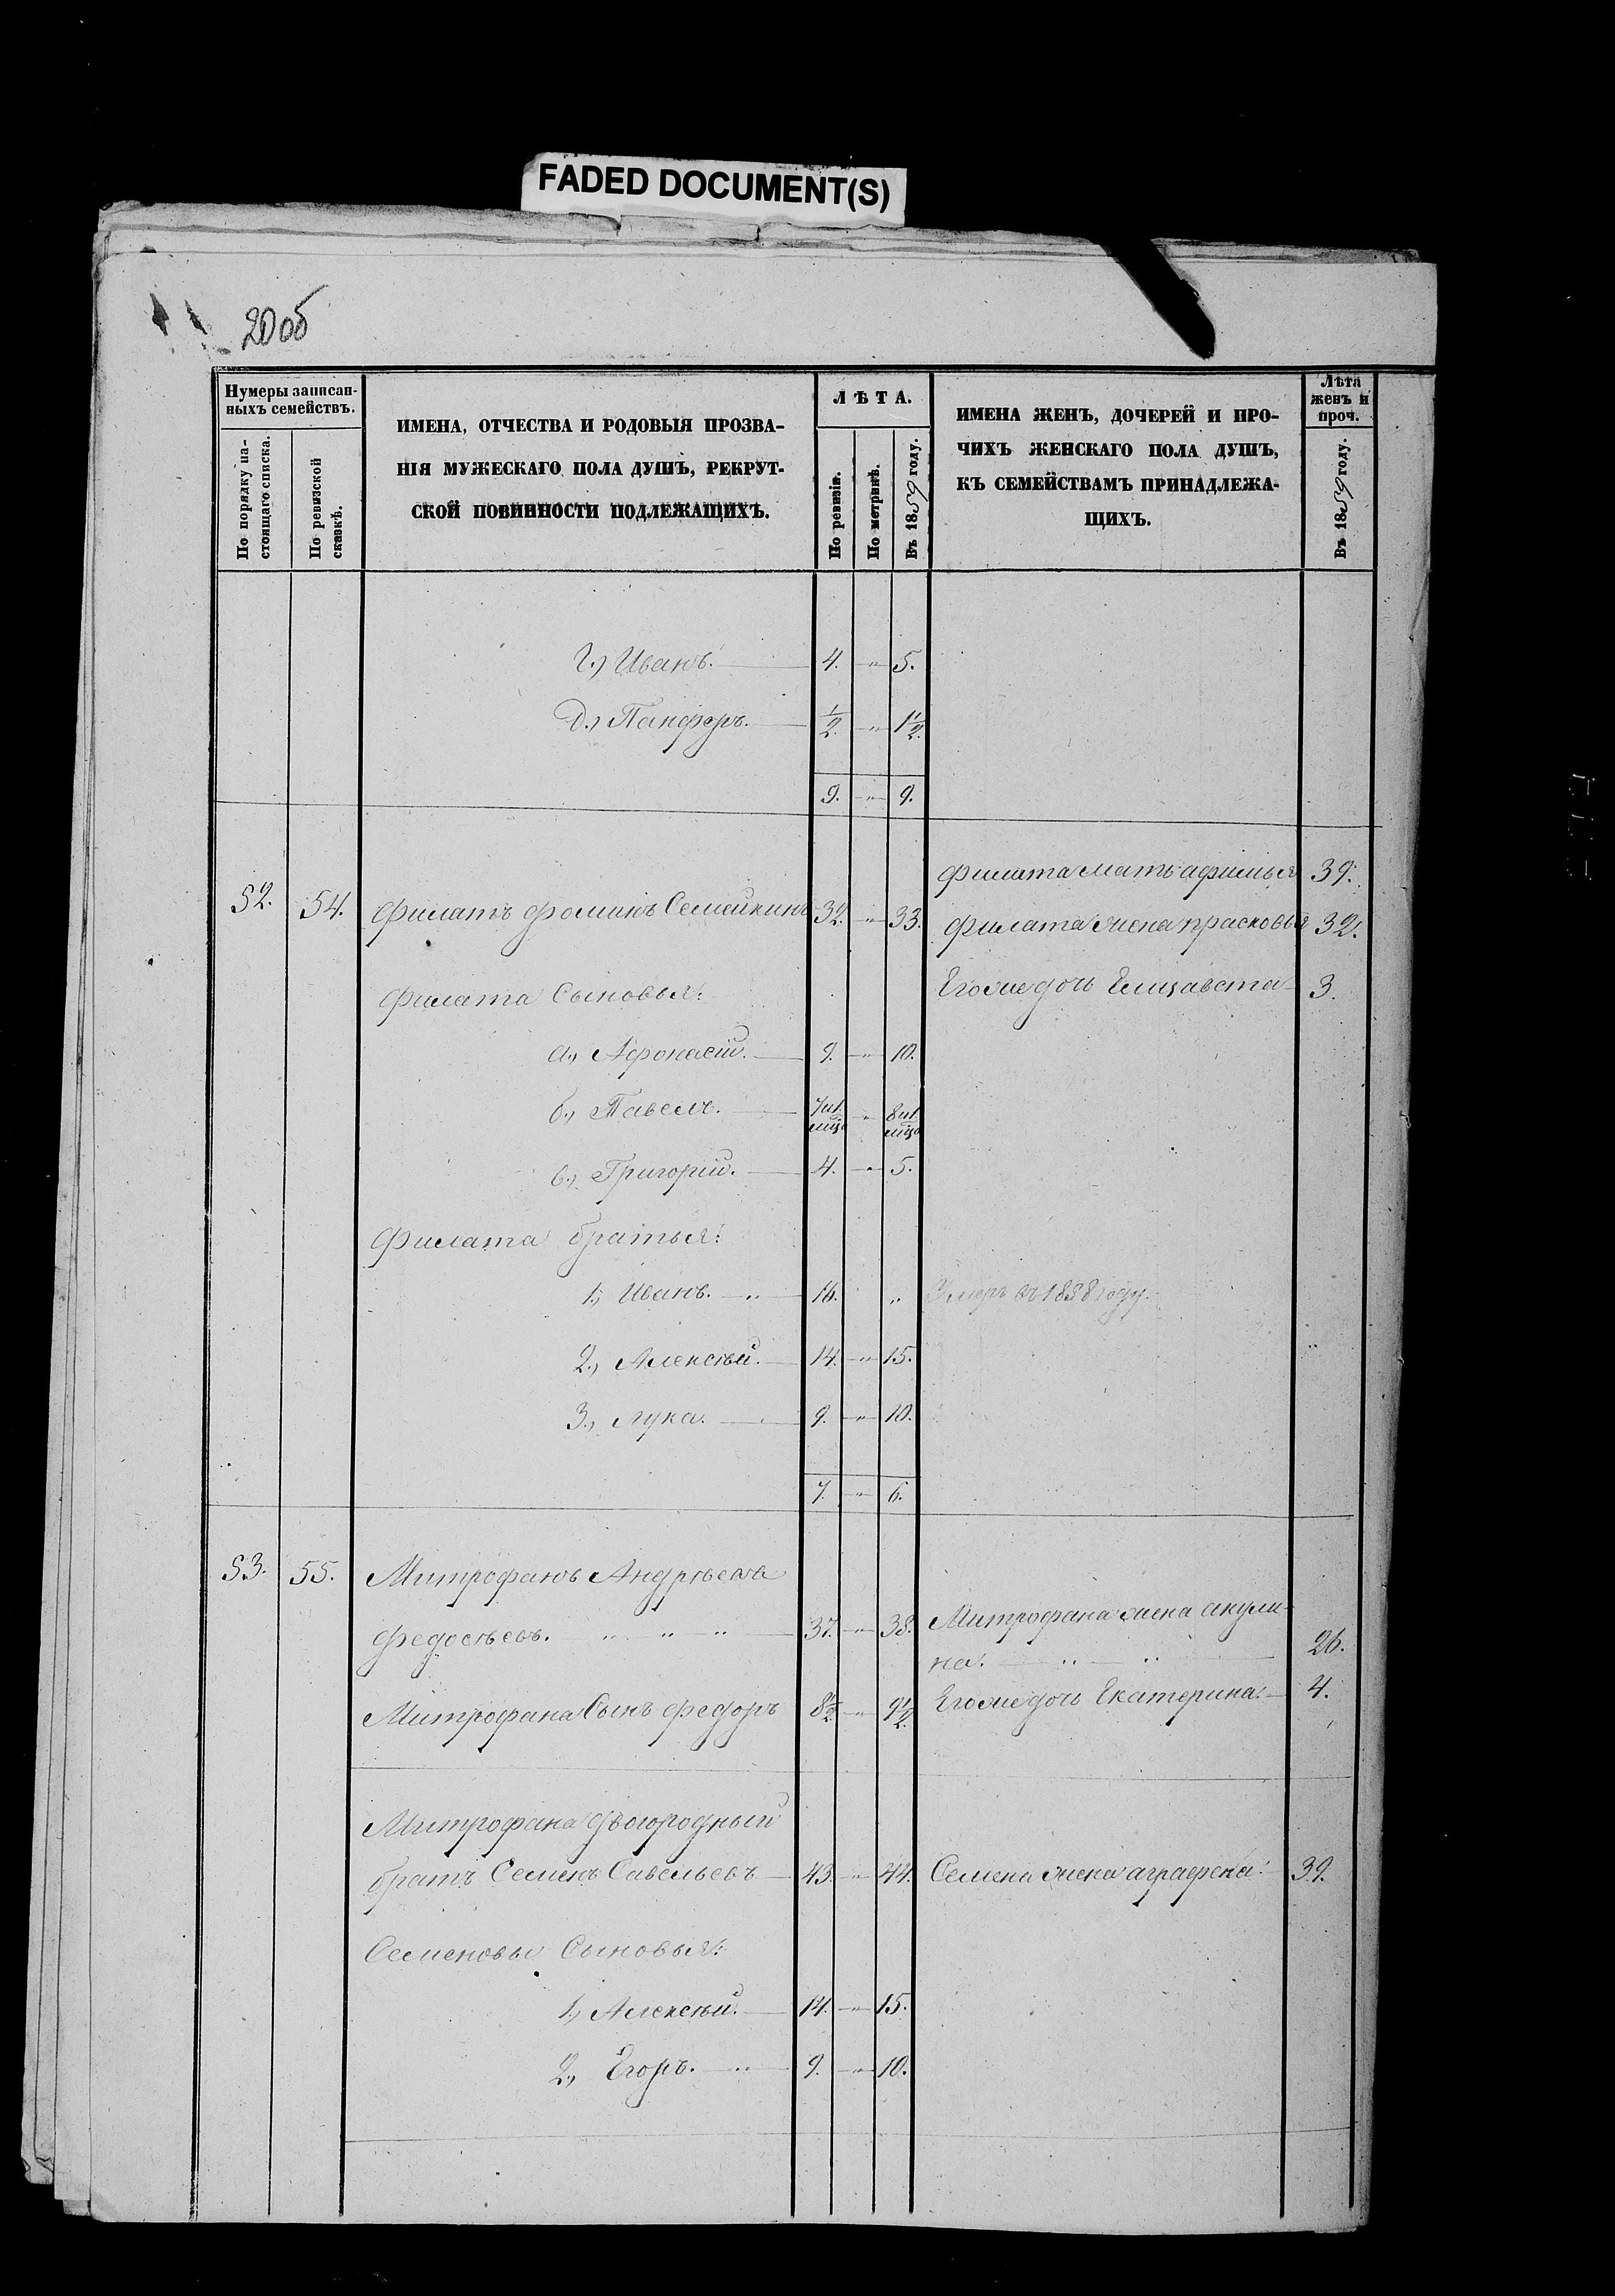 FADED DOCUMENT(S)
20 об
Нумеры записан-
ныхъ семействъ.
По порядку на-
стоящаго списка.
По ревизской
сказкѣ.
ИМЕНА, ОТЧЕСТВА И РОДОВЫЯ ПРОЗВА-
НІЯ МУЖЕСКАГО ПОЛА ДУШЪ, РЕКРУТ-
СКОЙ ПОВИННОСТИ ПОДЛЕЖАЩИХЪ.
ЛѢТА.
По ревизіи.
По метрикѣ.
Въ 1859 году.
ИМЕНА ЖЕНЪ, ДОЧЕРЕЙ И ПРО-
ЧИХЪ ЖЕНСКАГО ПОЛА ДУШЪ,
КЪ СЕМЕЙСТВАМЪ ПРИНАДЛЕЖА-
ЩИХЪ.
Лѣта
женъ и
проч.
Въ 1859 году.
г., Иванъ. 4. " 5.
д., Панферъ. 1/2. " 1 1/2.
9. " 9.
Филата мать афимья 39.
52. 54. Филатъ фоминъ Семейкинъ 32. " 33. Филата жена прасковья 32.
Филата Сыновья: Его же дочь Елизавета 3.
а., Афонасій. 9. " 10.
б., Павелъ. " 
в., Григорій. 4. " 5.
Филата братья:
1., Иванъ. " 16. " Умеръ въ 1858 году.
2., Алексѣй. 14. " 15.
3., Лука. 9. " 10.
7. " 6.
53. 55. Митрофанъ Андрѣевъ
федосѣевъ. " " " 37. " 38. Митрофана жена акули-
на. " " 26.
Митрофана Сынъ федоръ 8 1/2. " 9 1/2. Его же дочь Екатерина. 4.
Митрофана двогородный
братъ Семенъ Савельевъ 43. " 44. Семена жена аграфена. 39.
Семеновы Сыновья:
1., Алексѣй. 14. " 15.
2., Егоръ. " 9. " 10.